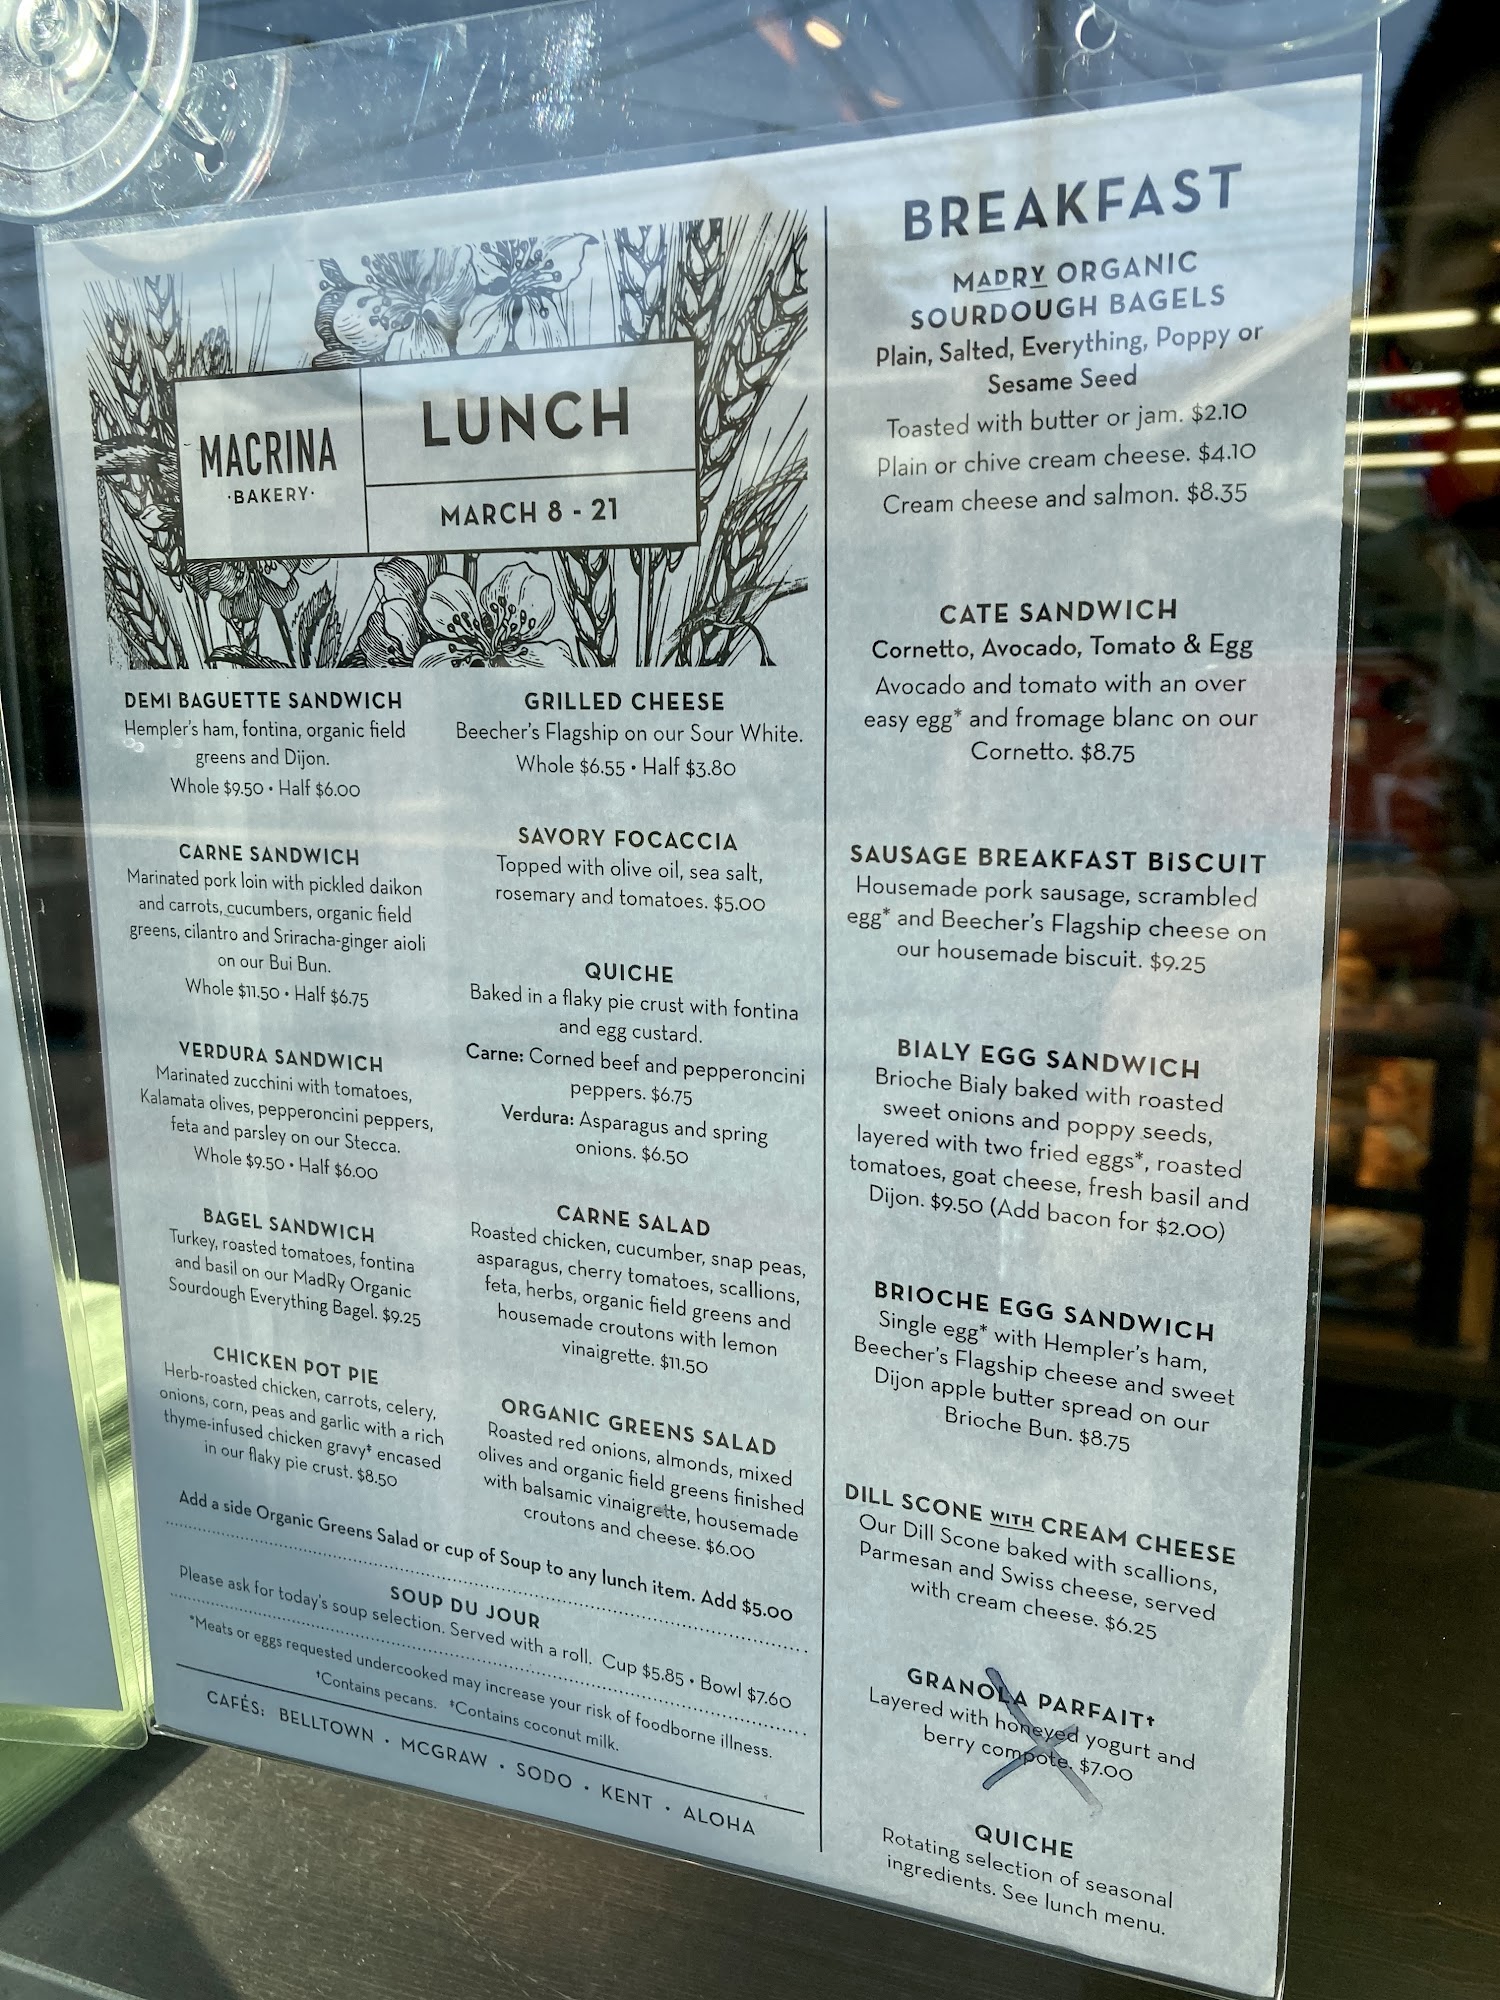 MACRINA
·BAKERY·
LUNCH
MARCH 8 - 21
DEMI BAGUETTE SANDWICH
Hempler's ham, fontina, organic field
greens and Dijon.
Whole $9.50 • Half $6.00
CARNE SANDWICH
Marinated pork loin with pickled daikon
and carrots, cucumbers, organic field
greens, cilantro and Sriracha-ginger aioli
on our Bui Bun.
Whole $11.50 • Half $6.75
VERDURA SANDWICH
Marinated zucchini with tomatoes,
Kalamata olives, pepperoncini peppers,
feta and parsley on our Stecca.
Whole $9.50 • Half $6.00
BAGEL SANDWICH
Turkey, roasted tomatoes, fontina
and basil on our MadRy Organic
Sourdough Everything Bagel. $9.25
CHICKEN POT PIE
Herb-roasted chicken, carrots, celery,
onions, corn, peas and garlic with a rich
thyme-infused chicken gravy‡ encased
in our flaky pie crust. $8.50
GRILLED CHEESE
Beecher's Flagship on our Sour White.
Whole $6.55 • Half $3.80
SAVORY FOCACCIA
Topped with olive oil, sea salt,
rosemary and tomatoes. $5.00
QUICHE
Baked in a flaky pie crust with fontina
and egg custard.
Carne: Corned beef and pepperoncini
peppers. $6.75
Verdura: Asparagus and spring
onions. $6.50
CARNE SALAD
Roasted chicken, cucumber, snap peas,
asparagus, cherry tomatoes, scallions,
feta, herbs, organic field greens and
housemade croutons with lemon
vinaigrette. $11.50
ORGANIC GREENS SALAD
Roasted red onions, almonds, mixed
olives and organic field greens finished
with balsamic vinaigrette, housemade
croutons and cheese. $6.00
Add a side Organic Greens Salad or cup of Soup to any lunch item. Add $5.00
SOUP DU JOUR
Please ask for today's soup selection. Served with a roll. Cup $5.85 • Bowl $7.60
*Meats or eggs requested undercooked may increase your risk of foodborne illness.
†Contains pecans. ‡Contains coconut milk.
CAFÉS: BELLTOWN • MCGRAW • SODO • KENT • ALOHA
BREAKFAST
MADRY ORGANIC
SOURDOUGH BAGELS
Plain, Salted, Everything, Poppy or
Sesame Seed
Toasted with butter or jam. $2.10
Plain or chive cream cheese. $4.10
Cream cheese and salmon. $8.35
CATE SANDWICH
Cornetto, Avocado, Tomato & Egg
Avocado and tomato with an over
easy egg* and fromage blanc on our
Cornetto. $8.75
SAUSAGE BREAKFAST BISCUIT
Housemade pork sausage, scrambled
egg* and Beecher's Flagship cheese on
our housemade biscuit. $9.25
BIALY EGG SANDWICH
Brioche Bialy baked with roasted
sweet onions and poppy seeds,
layered with two fried eggs*, roasted
tomatoes, goat cheese, fresh basil and
Dijon. $9.50 (Add bacon for $2.00)
BRIOCHE EGG SANDWICH
Single egg* with Hempler's ham,
Beecher's Flagship cheese and sweet
Dijon apple butter spread on our
Brioche Bun. $8.75
DILL SCONE WITH CREAM CHEESE
Our Dill Scone baked with scallions,
Parmesan and Swiss cheese, served
with cream cheese. $6.25
GRANOLA PARFAIT†
Layered with honeyed yogurt and
berry compote. $7.00
QUICHE
Rotating selection of seasonal
ingredients. See lunch menu.